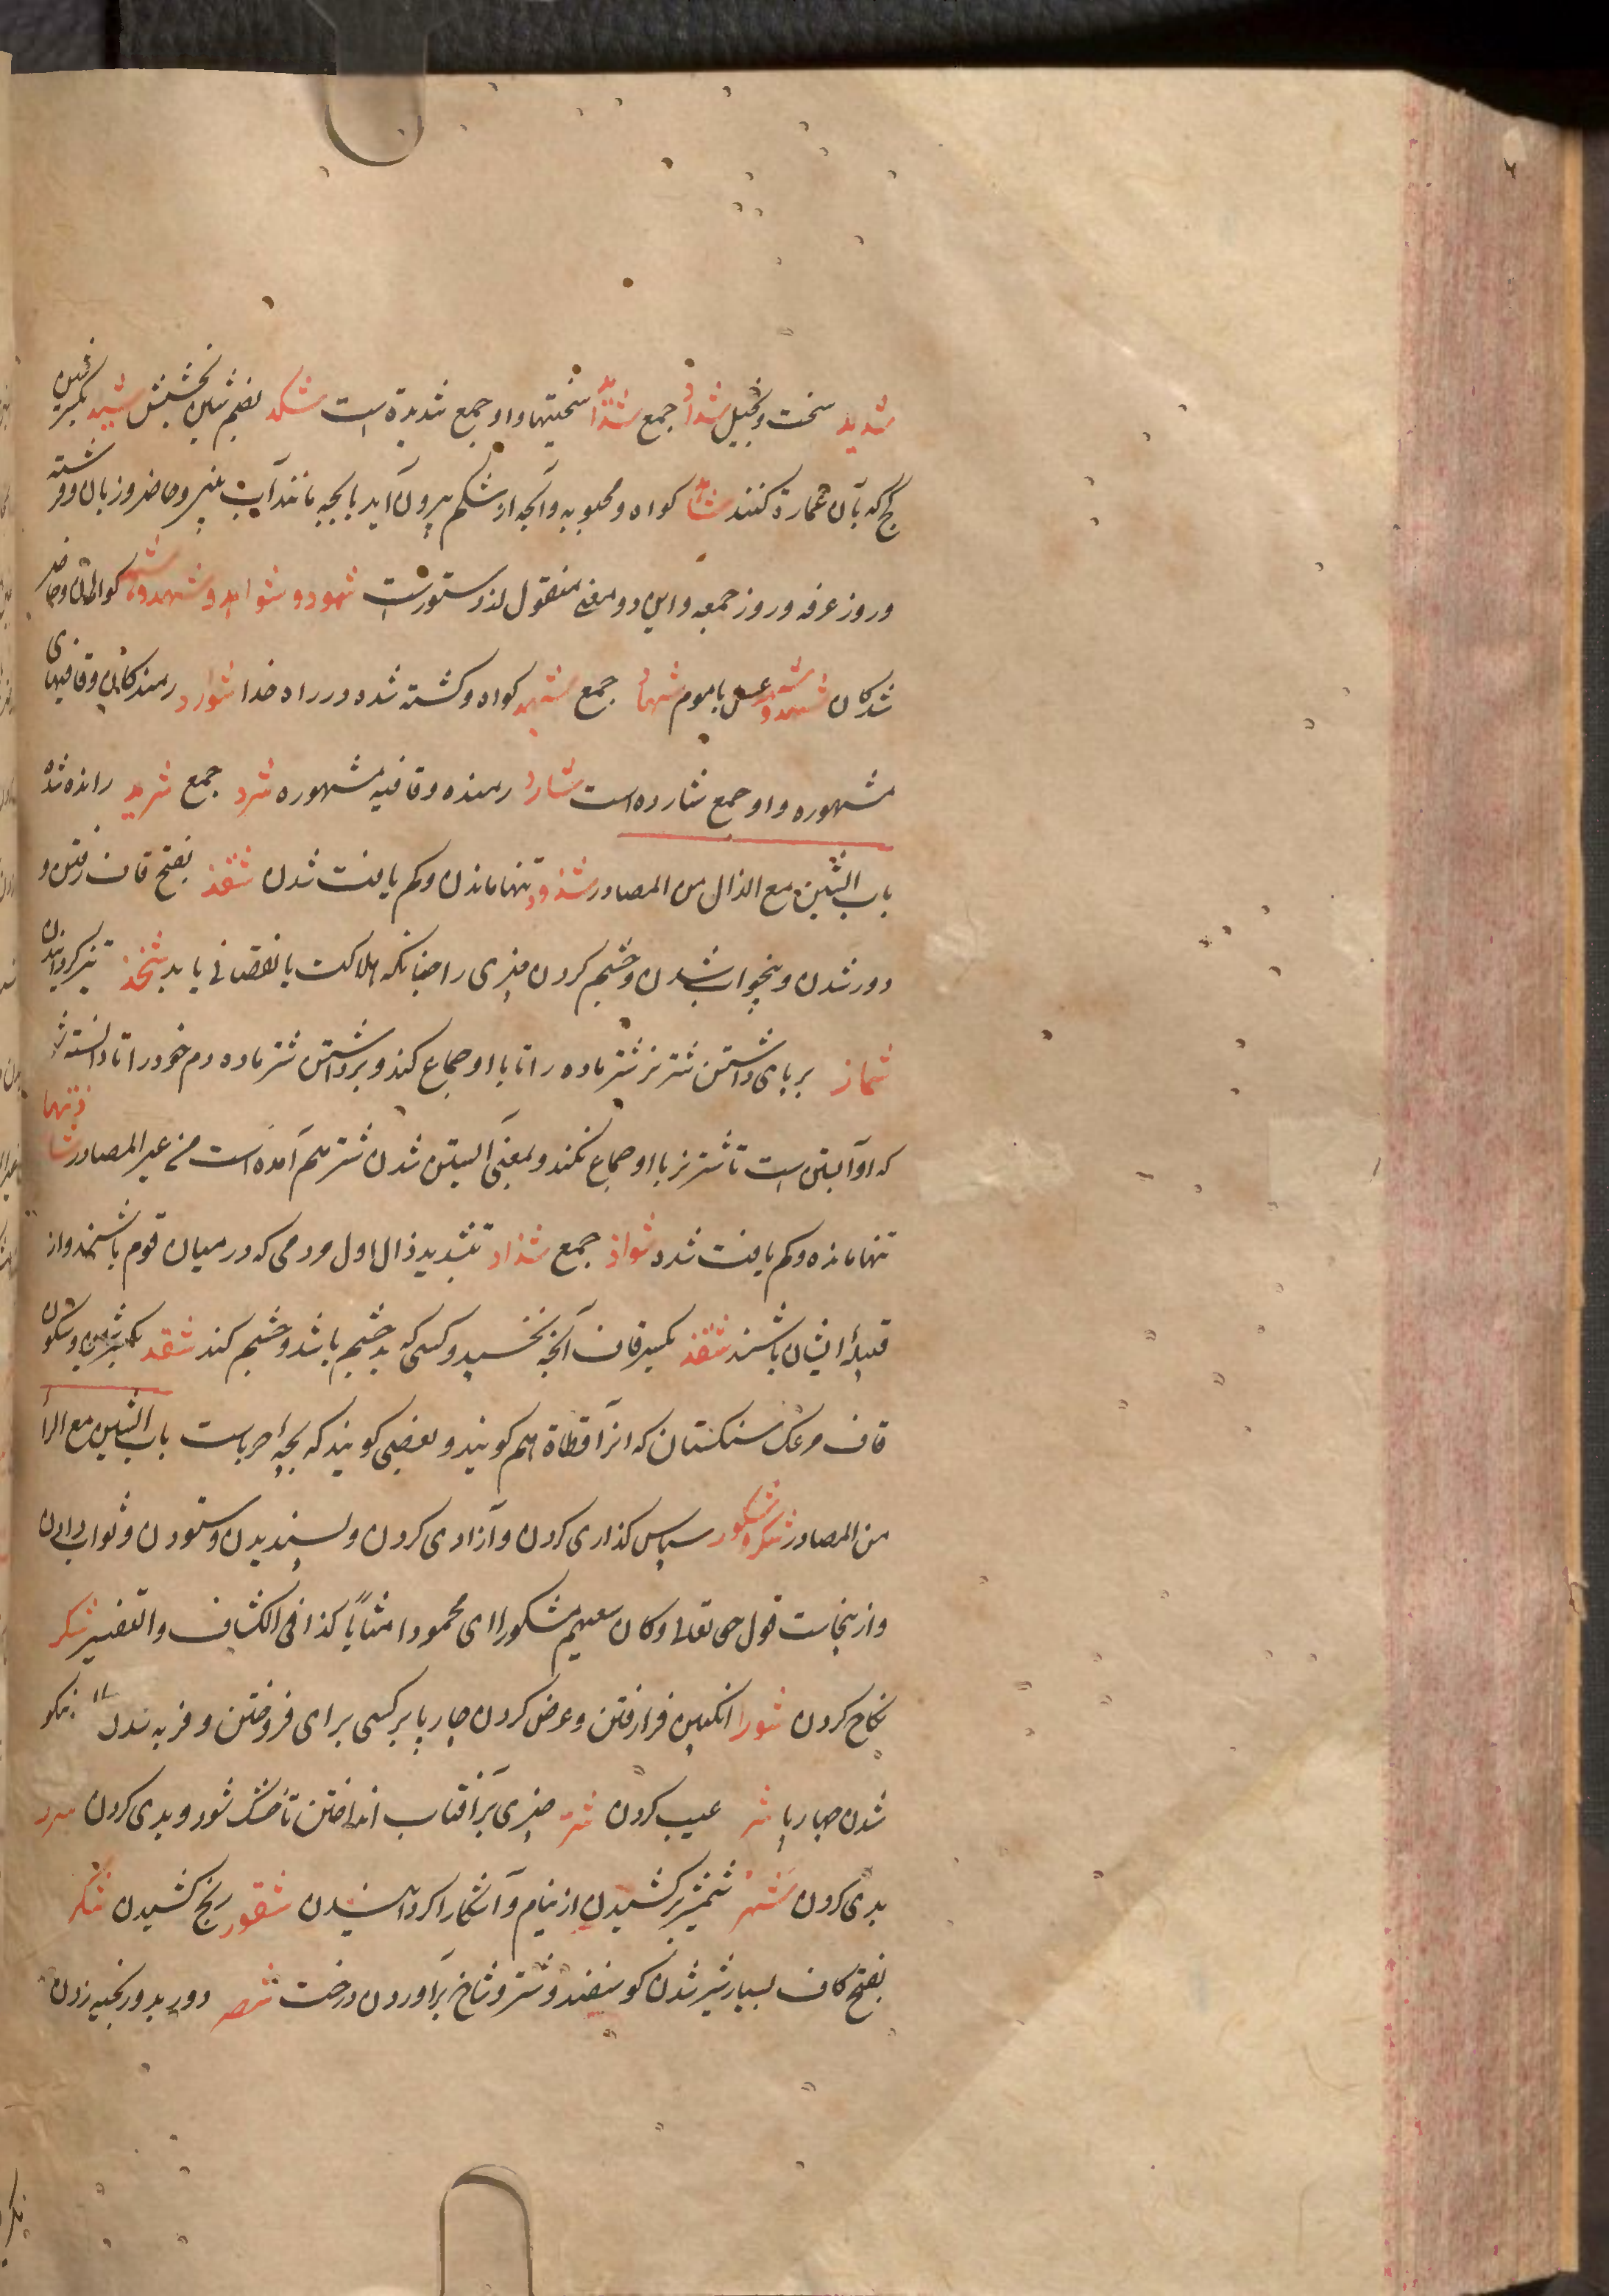 شدید سخت و بخیل شداد جمع شداید سختیها و او جمع شدیدة است شکد بضم شین بخشش شید بکسر شین
گچ که بآن عمارة کنند شاهد کواه و محبوبه و آنچه از شکم بیرون آید با بچه مانند آب بینی و حاضر و زبان و فرشته
و روز عرفه و روز جمعه و این دو معنی منقول از دستورست شهود و شواهد و شهد و کواهان و حاضر
شدکان شهد و شهد عسل باموم شهدا جمع شهید کواه و کشته شده در راه خدا شوارد رمندکان و قافیهای
مشهوره و او جمع شارده است شارد رمنده و قافیه مشهوره شرد جمع شرید رانده شده
باب الشین مع الذال من المصادر شذوذ تنها ماندن و کم یافت شدن شقذ بفتح قاف رفتن و
دور شدن و بیخواب شدن و چشم کردن چیزی را چنانکه هلاکت یا نقصانی یابد شحذ تیز کردانیدن
شماذ بر پای داشتن شتر نر شتر ماده را تا با او جماع کند و برداشتن شتر ماده دم خود را تا دانسته شود
که او آبستن است تا شتر نر با او جماع نکند و بمعنی آبستن شدن شتر هم آمده است من غیر المصادر شاذ تنها
تنها مانده و کم یافت شده شواذ جمع شذاذ بتشدید ذال اول مردمی که در میان قوم باشند و از
قبیلهٔ ایشان باشند شقذ بکسر قاف آنچه نخسبد و کسی که بد چشم باشد و چشم کند شقذ بکسر شین و سکون
قاف مرغک سنکستان که انرا قطاة هم کویند و بعضی کویند که بچه حرباست باب الشین مع الرا
من المصادر شکر و شکور سپاس کذاری کردن و آزادی کردن و پسندیدن و ستودن و ثواب دادن
و ازینجاست قول حق تعالی و کان سعیهم مشکورا ای محمودا مثابا کذا فی الکشاف و التفسیر شکر
نکاح کردن شورا انکبین فرا رفتن و عرض کردن چارپا بر کسی برای فروختن و فربه شدن نیکو
شدن چهارپا شر عیب کردن شر چیزی بر آفتاب انداختن تا خشک شود و بدی کردن شرر
بدی کردن شهر شمشیر برکشیدن از نیام و آشکارا کردانیدن شقور رنج کشیدن شکر
بفتح کاف بسیار شیر شدن کوسفند و شتر و شاخ برآوردن درخت شصر دورید و بخیه زدن